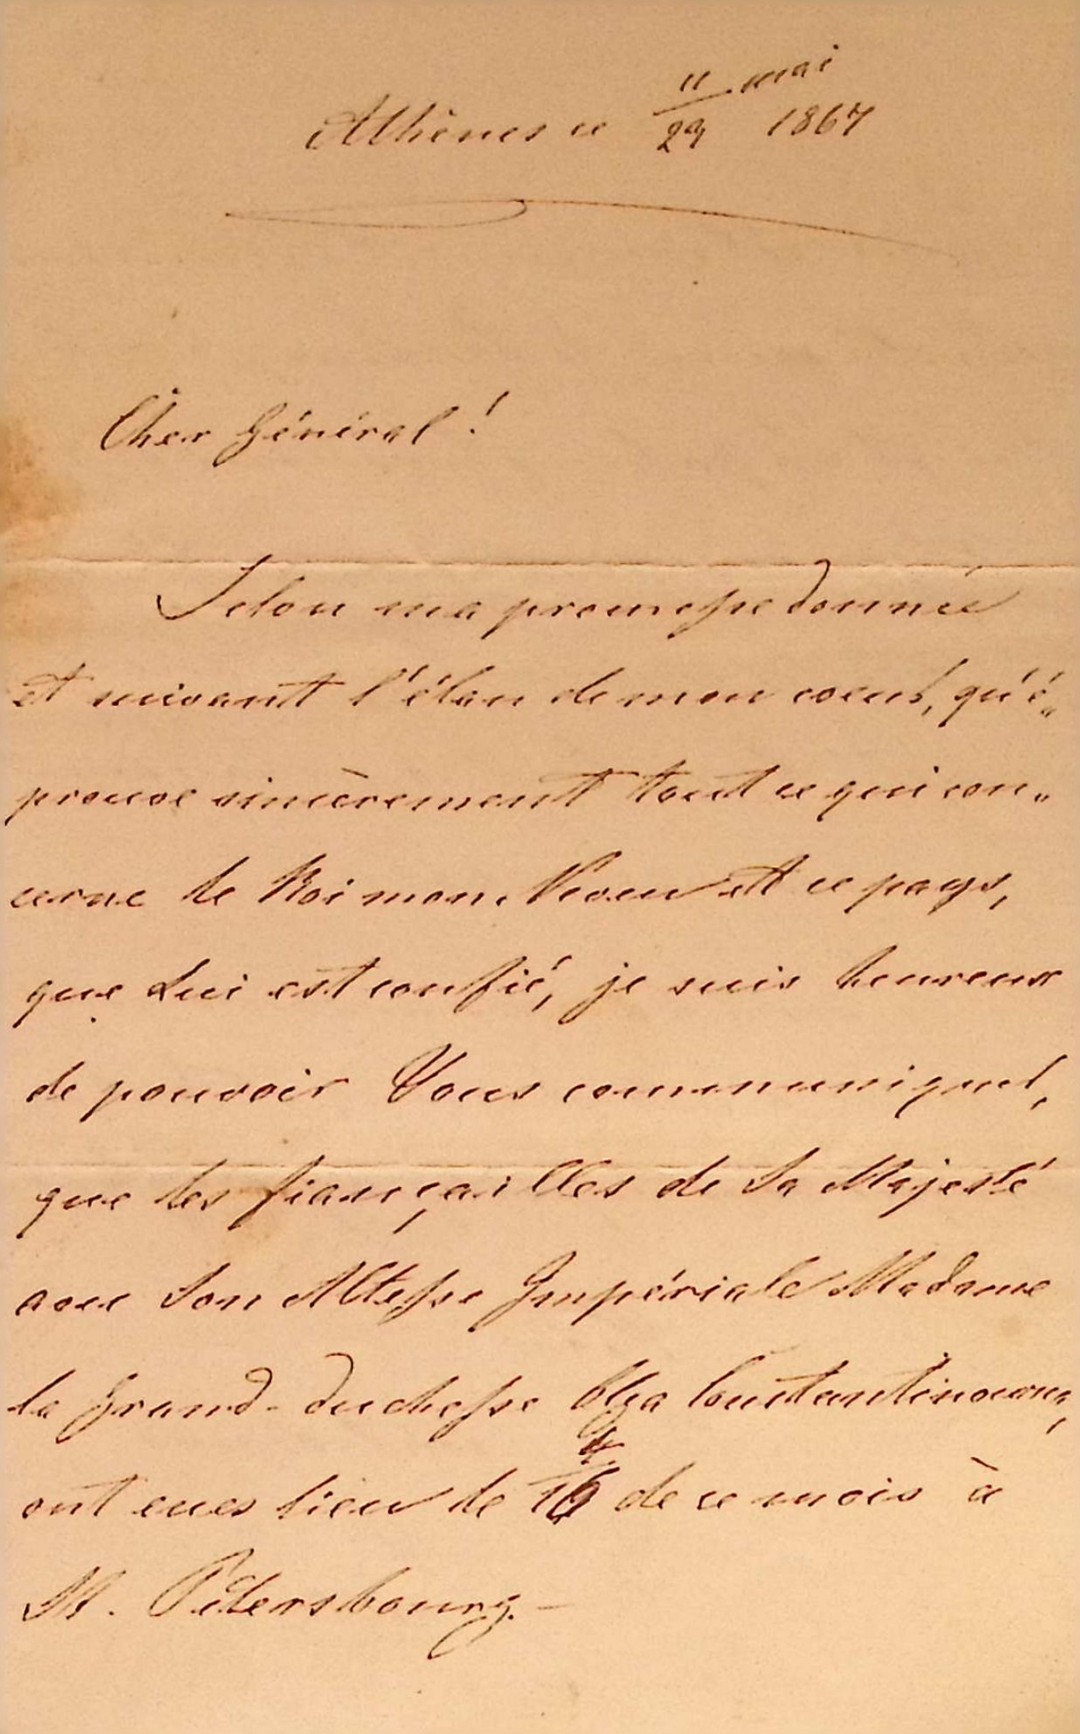 11 mai
Athènes ce 29 1867
Cher Général!
Selon ma promesse donnée
et suivant l'élan de mon coeur, qu'é„
prouve sincèrement tout ce qui con„
cerne le Roi mon Neveu et ce pays,
que Lui est confié, je suis heureux
de pouvoir Vous communiquer,
que les fiançailles de Sa Majesté
avec Son Altesse Impériale Madame
la Grand-duchesse Olga Constantinowna,
ont eues lieu le de ce mois à
St. Pétersbourg.—